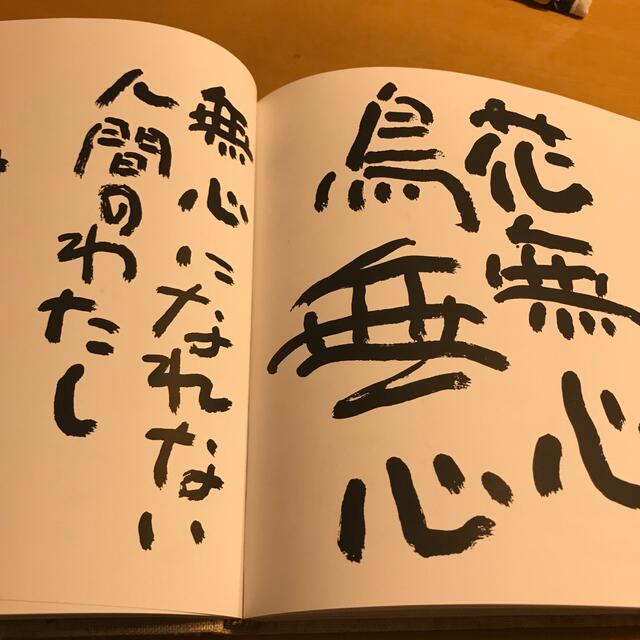 花無心
鳥無心
無心になれない
人間のわたし